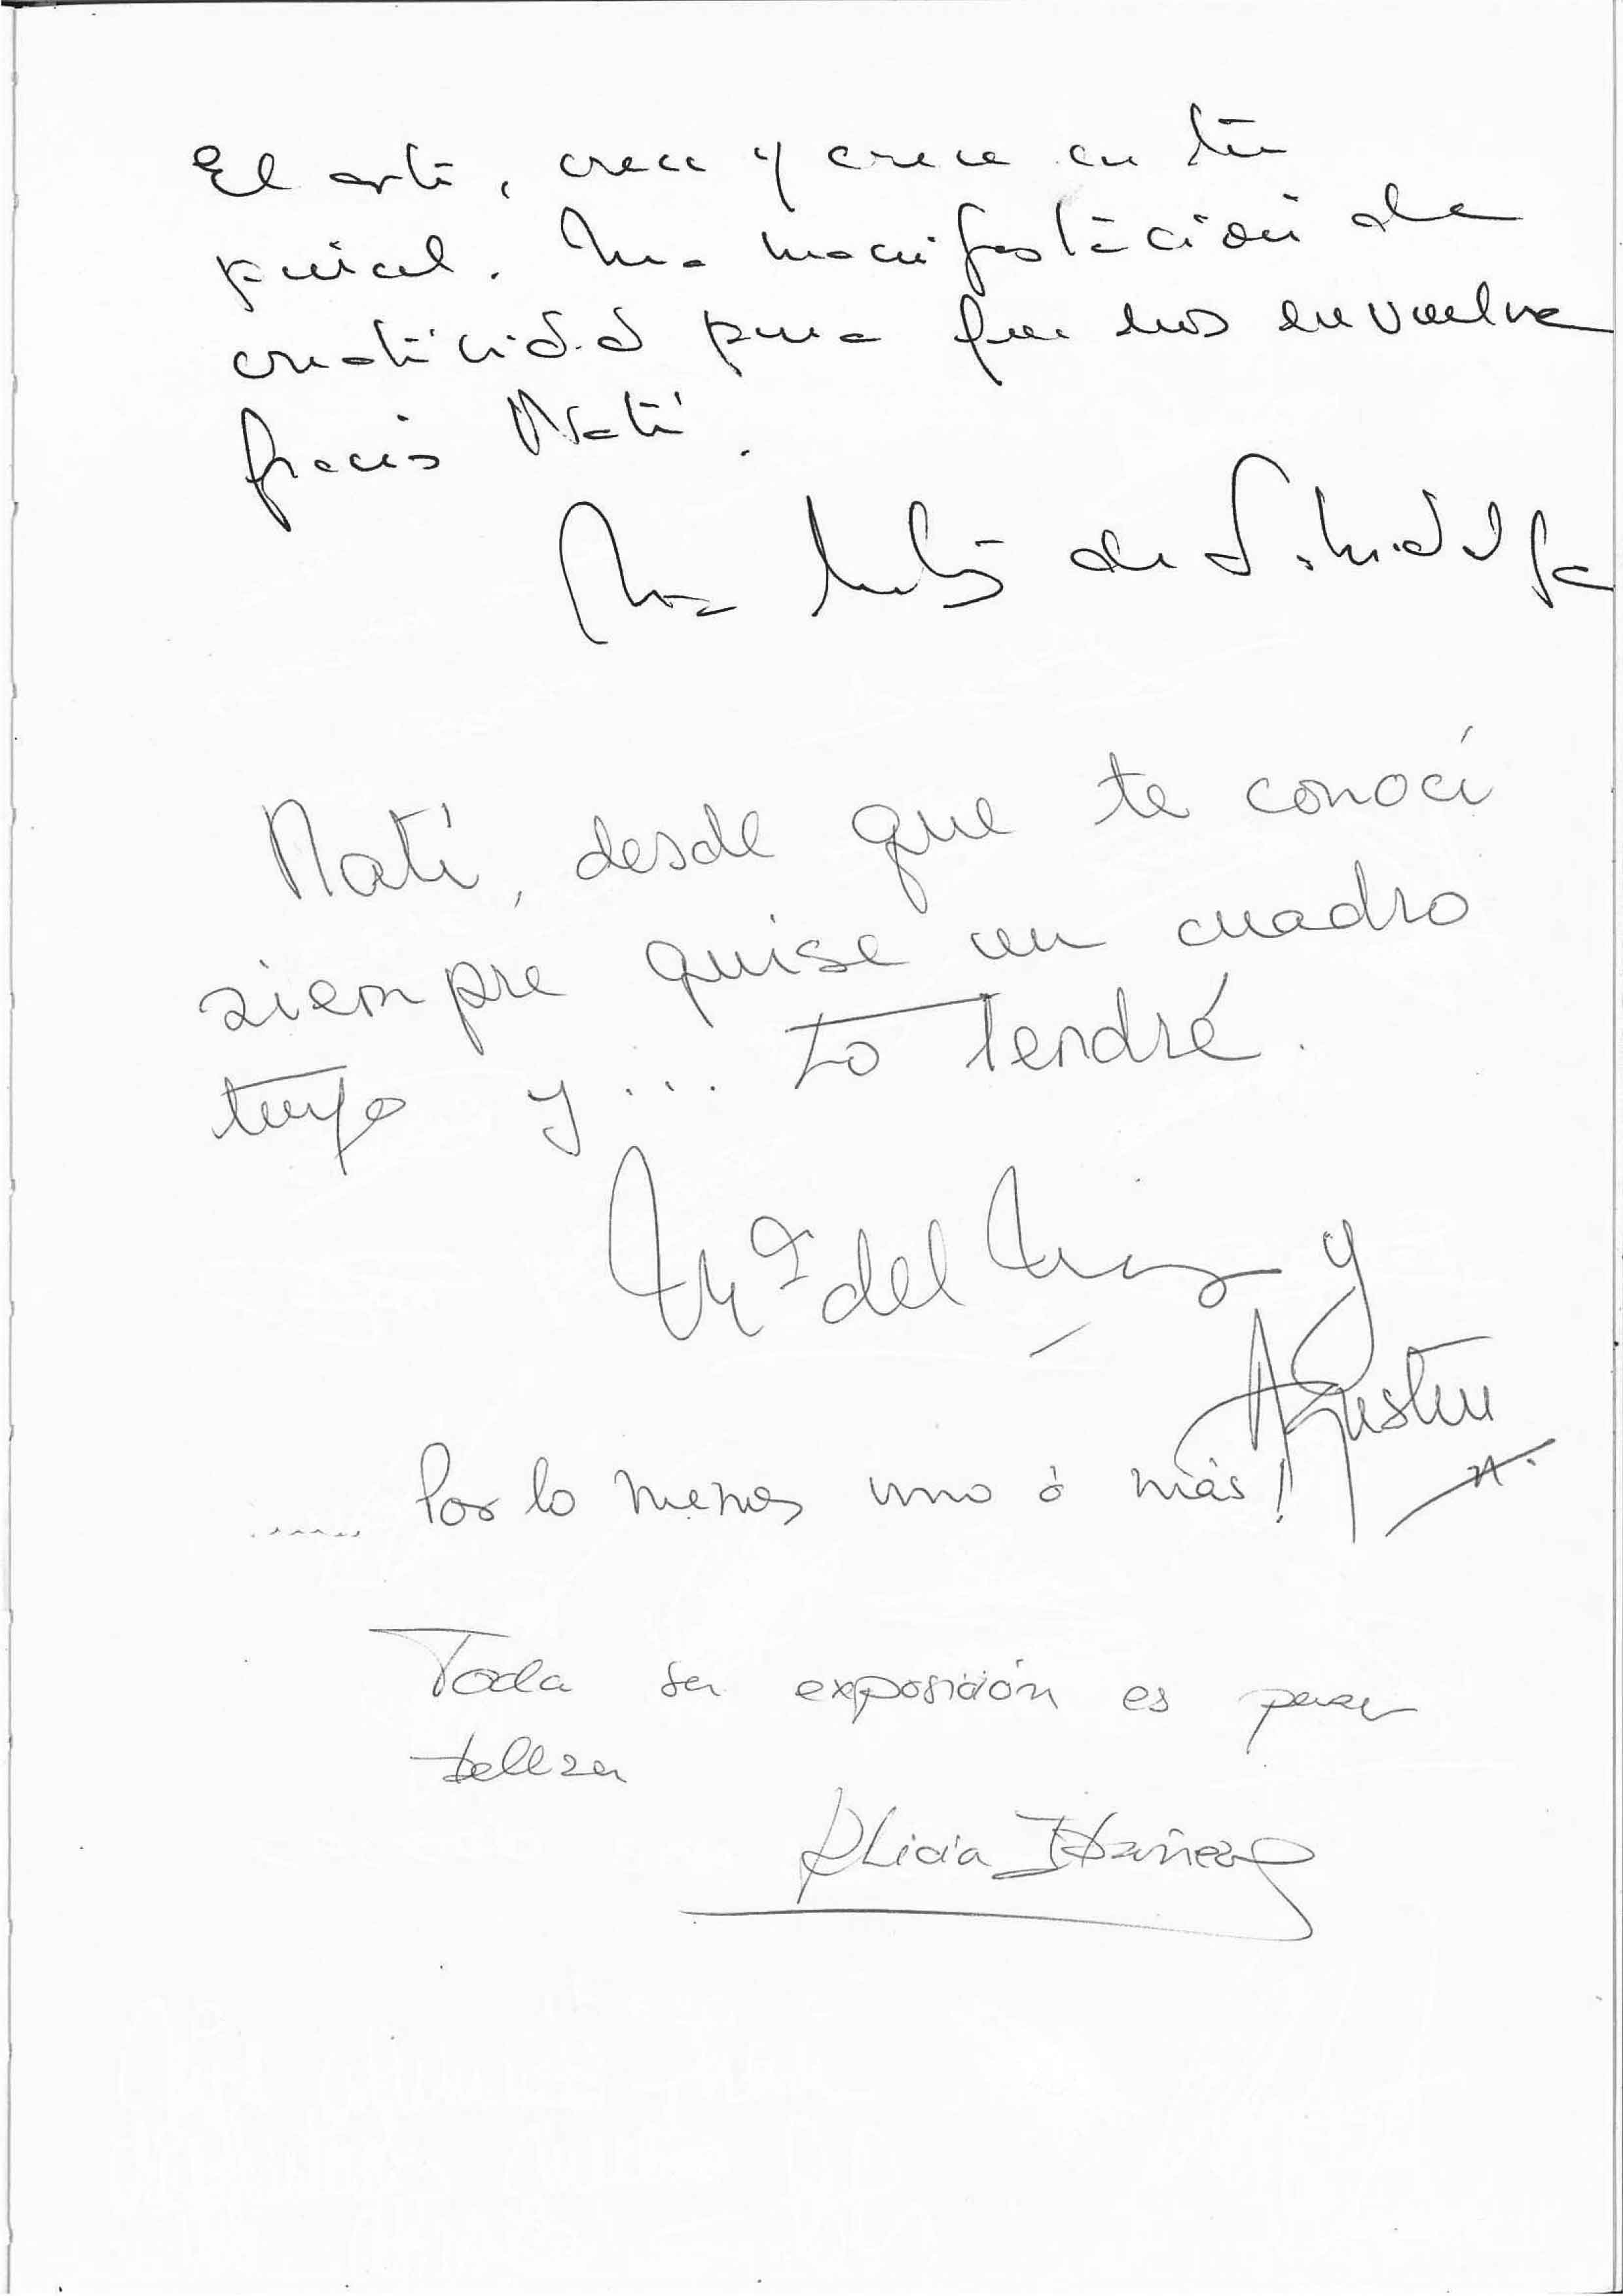 El arte, crece y crece en tu
pincel. Una manifestación de
creatividad pura que nos envuelve
gracias Nati.
de
Nati, desde que te conocí
siempre quise un cuadro
tuyo y ... Lo tendré.
Mª del Mar y
Agustin
...... Por lo menos uno ó más!
Toda su exposición es pura
belleza
Alicia Ibañez